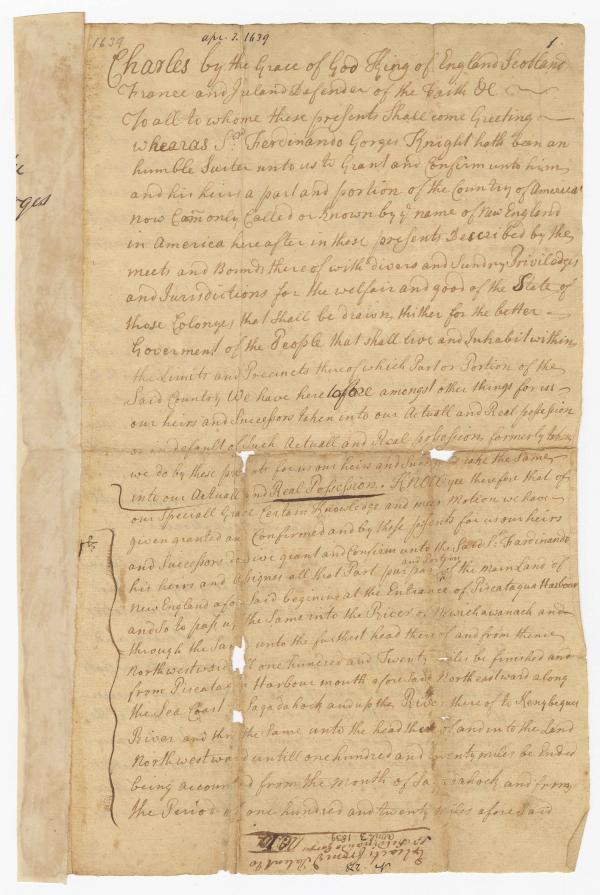 1639
apr. 3. 1639
1.
Charles by the Grace of God King of England Scotland
France and Ireland Defender of the Faith &c
To all to whome these presents Shall come Greeting
whearas Sr. Ferdinando Gorges Knight hath bean an
humble Suiter unto us to Grant and Confirm unto him
and his heirs a part and portion of the Country of America
now Comonly Called or known by ye name of New England
in America hereafter in these presents Described by the
meets and Bounds thereof with divers and Sundry Priviledges
and Jurisdictions for the welfair and good of the State of
those Colonges that Shall be drawn thither for the better
Goverment of the People that shall live and Inhabit within
the Limits and Precincts thereof which Part or Portion of the
Said Country We have heretofore amongst other things for us
our heirs and Successors taken into our Actuall and Real posession
or in default of Such Actuall and Real possession formerly taken
we do by these for us our heirs and take the Same
into our Actuall and Real Possession. KNOW ye therefore that of
our Speciall Grace Certain Knowledge and meer Motion we have
given granted and Confirmed and by these for us our heirs
and Successors do give grant and Confirm unto the Said Sr. Ferdinando
his heirs and asignes all that Part and portion of the mainland of
New England afore Said begining at the Entrance of Piscataqua Harbour
and So to pass up the Same into the River of Newichawanack and
through the Same unto the furthest head thereof and from thence
Northwestward one hundred and Twenty miles be finished and
from Piscataqua Harbour mouth afore Said Northeastward along
the Sea Coast Sagadahock and up the River thereof to Kenybeques
River and thro the Same unto the head thereof and into the Land
Northwestward untill one hundred and twenty miles be Ended
being accounted from the mouth of Sagadahock and from
the Period of one hundred and twenty miles afore Said
Patent to
April 3 1639